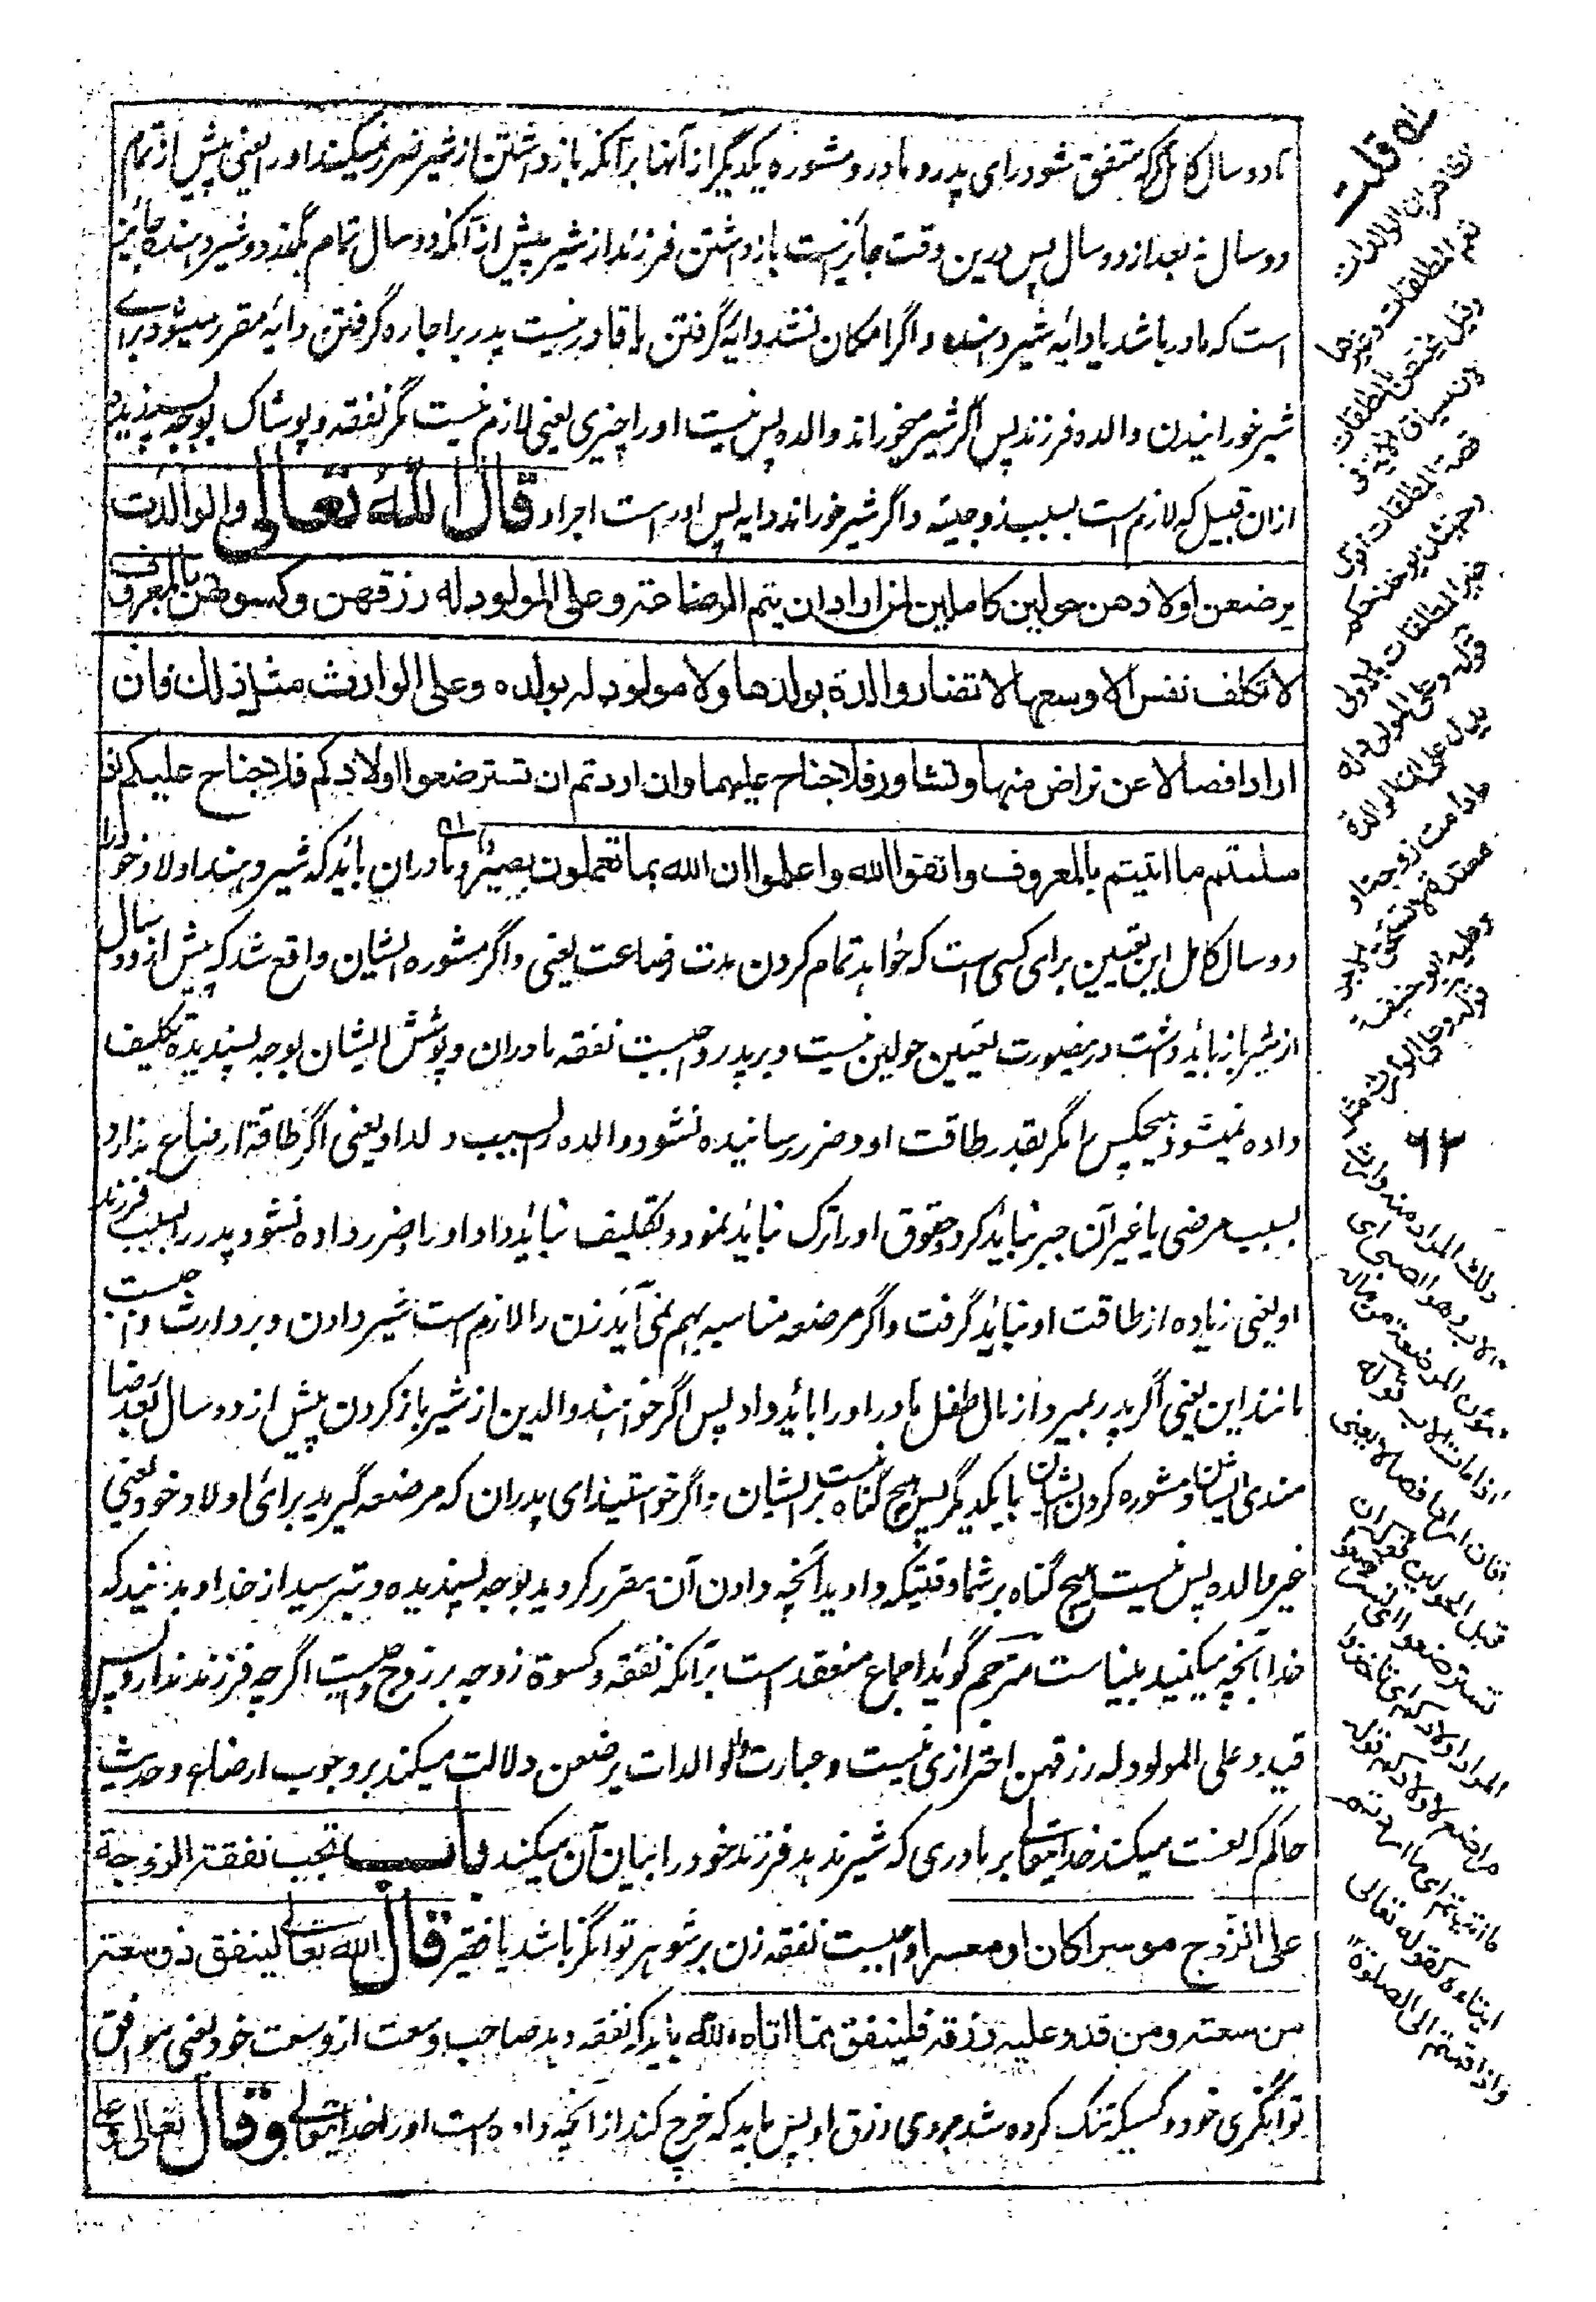 تا دو سال کامل مگر که متفق شود رای پدر و مادر و مشوره یکدیگر از آنها برآنکه باز داشتن از شیر ضرر نمیکند او را یعنی پیش از تمام
دو سال نه بعد از دو سال پس درین وقت جائز است باز داشتن فرزند از شیر پیش از آنکه دو سال تمام کند و شیر دهنده جائز
است که مادر باشد یا دایهٔ شیر دهنده و اگر امکان نشد دایه گرفتن یا قادر نیست پدر بر اجاره گرفتن دایه مقرر میشود برای
شیر خورانیدن والده فرزند پس اگر شیر میخوراند والده پس نیست او را چیزی یعنی لازم نیست مگر نفقه و پوشاک بوجه پسندیده
ازان قبیل که لازم است بسبب زوجیت و اگر شیر خوراند دایه پس او راست اجر او قال الله تعالی والوالدت
یرضعن اولادهن حولین کاملین لمن اراد ان یتم الرضاعة وعلی المولود له رزقهن وکسوتهن بالمعروف
لا تکلف نفس الا وسعها لا تضار والدة بولدها ولا مولود له بولده وعلی الوارث مثل ذلک فان
ارادا فصالا عن تراض منهما وتشاور فلا جناح علیهما وان اردتم ان تسترضعوا اولادکم فلا جناح علیکم اذا
سلمتم ما اتیتم بالمعروف واتقوا الله واعلموا ان الله بما تعملون بصیر و مادران باید که شیر دهند اولاد خود را
دو سال کامل این تعیین برای کسی است که خواهد تمام کردن مدت رضاعت یعنی و اگر مشوره ایشان واقع شد که پیش از دو سال
از شیر باز باید داشت درینصورت تعیین حولین نیست و بر پدر واجبست نفقه مادران و پوشش ایشان بوجه پسندیده تکلیف
داده نمیشود هیچکس مگر بقدر طاقت او و ضرر رسانیده نشود والده بسبب ولد او یعنی اگر طاقة ارضاع ندارد
بسبب مرضی یا غیر آن جبر نباید کرد و حقوق او را ترک نباید نمود و تکلیف نباید داد او را و ضرر داده نشود پدر را بسبب فرزند
او یعنی زیاده از طاقت او نباید گرفت و اگر مرضعه مناسبه بهم نمی آید زن را لازم است شیر دادن و بر وارث واجبست
مانند این یعنی اگر پدر بمیرد از مال طفل مادر او را باید داد پس اگر خواهند والدین از شیر باز کردن پیش از دو سال بعد رضا
مندی ایشان و مشوره کردن ایشان با یکدیگر پس هیچ گناه نیست بر ایشان و اگر خواستید ای پدران که مرضعه گیرید برای اولاد خود یعنی
غیر والده پس نیست هیچ گناه بر شما وقتیکه دادید آنچه دادن آن مقرر کردید بوجه پسندیده و بترسید از خدا و بدانید که
خدا بآنچه میکنید بینا است مترجم گوید اجماع منعقد است برآنکه نفقه و کسوة زوجه بر زوج واجبست اگرچه فرزند ندارد پس
قید وعلی المولود له رزقهن احترازی نیست و عبارت والوالدات یرضعن دلالت میکند بر وجوب ارضاع و حدیث
حاکم که لعنت میکند خدایتعالی بر مادری که شیر ندهد فرزند خود را بیان آن میکند باب تجب نفقة الزوجة
علی الزوج موسرا کان او معسرا واجبست نفقه زن بر شوهر توانگر باشد یا فقیر قال الله تعالی لینفق ذو سعة
من سعته ومن قدر علیه رزقه فلینفق مما اتاه الله باید که نفقه دهد صاحب وسعت از وسعت خود یعنی موافق
توانگری خود و کسیکه تنگ کرده شد بروی رزق او پس باید که خرج کند از آنچه داده است او را خدایتعالی وقال تعالی وعلی
قلت
ظاهر ان الوالدات
تعم المطلقات وغیرها
وقیل یختص بالمطلقات
قصة المطلقات
قوله وعلی المولود له
یدل علی ان الوالدة
ما دامت زوجة او
معتدة
وعلیه ابو حنیفة
قوله وعلی الوارث مثل
۶۳
ذلک المراد منه وارث
الاب وهو الصبی ای
مؤن المرضعة من ماله
اذا مات الاب قوله
فان ارادا فصالا یعنی
قبل الحولین
تسترضعوا
اولادکم
مراضع لاولادکم قوله
ما اتیتم ای ما اردتم
ایتاءه کقوله تعالی
واذا قمتم الی الصلوة